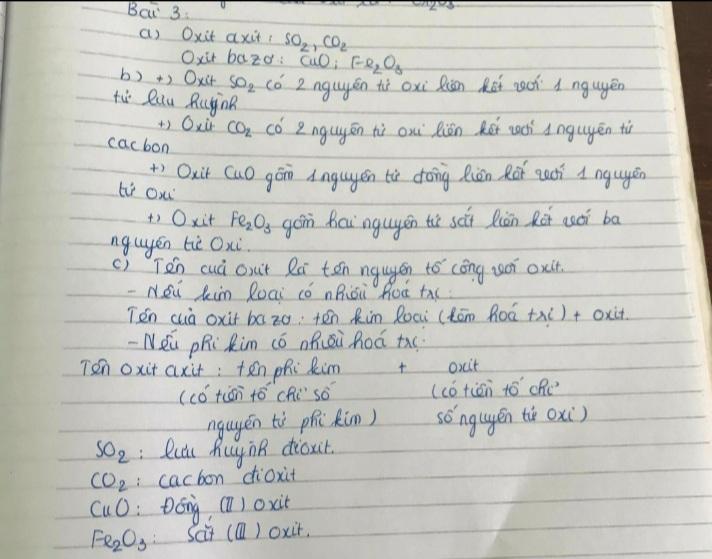 Bài 3:
a) Oxit axit: SO₂, CO₂
Oxit bazơ: CuO; Fe₂O₃
b) +) Oxit SO₂ có 2 nguyên tử oxi liên kết với 1 nguyên
tử lưu huỳnh
+) Oxit CO₂ có 2 nguyên tử oxi liên kết với 1 nguyên tử
cacbon
+) Oxit CuO gồm 1 nguyên tử đồng liên kết với 1 nguyên
tử oxi
+) Oxit Fe₂O₃ gồm hai nguyên tử sắt liên kết với ba
nguyên tử Oxi.
c) Tên của oxit là tên nguyên tố cộng với oxit.
- Nếu kim loại có nhiều hoá trị:
Tên của oxit bazơ: tên kim loại (kèm hoá trị) + oxit.
- Nếu phi kim có nhiều hoá trị:
Tên oxit axit: tên phi kim + oxit
(có tiền tố chỉ số (có tiền tố chỉ
nguyên tử phi kim) số nguyên tử oxi)
SO₂: lưu huỳnh đioxit.
CO₂: cacbon đioxit
CuO: Đồng (II) oxit
Fe₂O₃: Sắt (III) oxit.